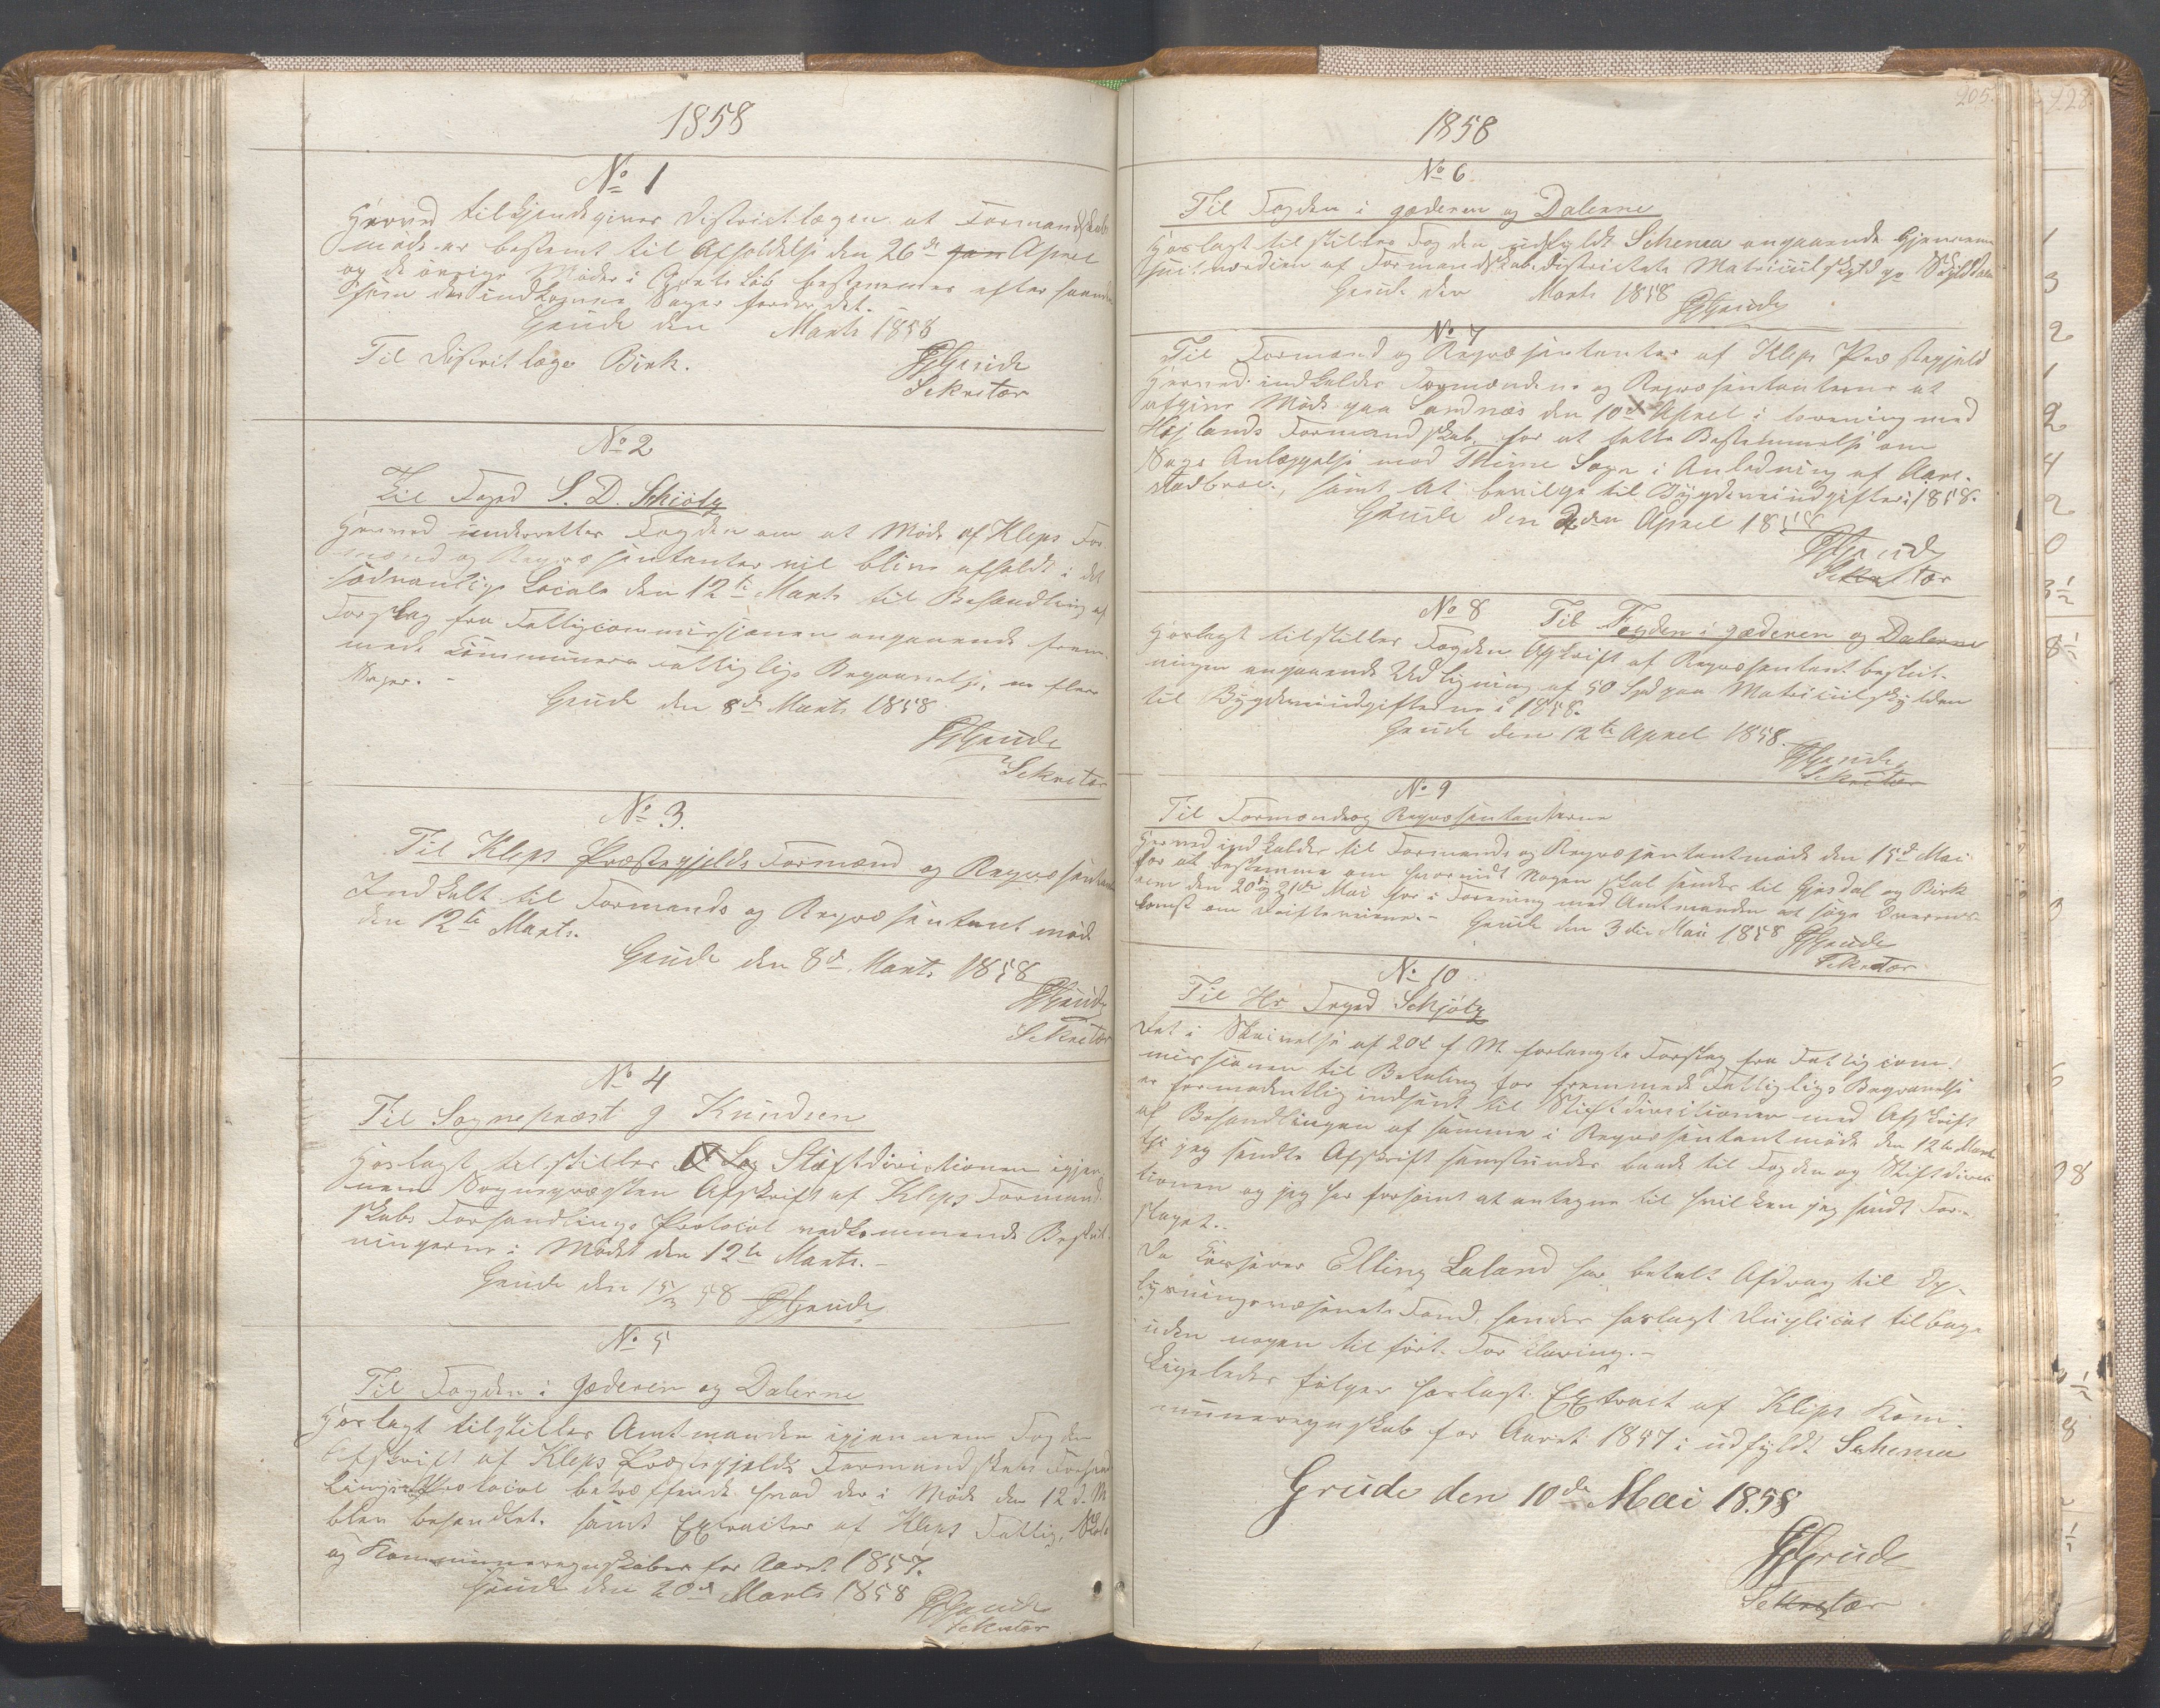 1858
No 1
Herved tilkjendegives Districtlægen at Formandskab
møde er bestemt til Afholdelse den 26de Jan April
og de øvrige Møder i Aarets Løb bestemmes efter haanden
som de indkomne Sager fordrer det.
Grude den Marts 1858
Til Districtlæge Birk. Grude
Sekretær
No 2
Til Foged S. D. Schiøtz
Herved underretter Fogden om at Møde af Kleps For-
mænd og Repræsentanter vil blive afholdt i det
sædvanlige Locale den 12te Marts til Behandling af
Forslag fra Fattigcommissionen angaaende frem-
mede Kommuners Fattigligs Begravelse, m flere
Sager. -
Grude den 8de Marts 1858
Grude
Sekretær
No 3.
Til Kleps Præstegjelds Formænd og Repræsentant
Indkalt til Formands og Repræsentant møde
den 12te Marts.
Grude den 8de Marts 1858
Grude
Sekretær
No 4
Til Sognepræst J. Knudsen
Hoslagt tilstilles Stiftdirectionen igjen-
nem Sognepræsten Afskrift af Kleps Formand-
skabs Forhandlings Protocol vedkommende Beslut-
ningerne i Mødet den 12te Marts. -
Grude den 15/3 58 Grude
No 5
Til Fogden i Jæderen og Dalerne
Hoslagt tilstilles Amtmanden igjennem Fogden
Afskrift af Kleps Præstegjelds Formandskabs Forhand
lings Protocol betræffende hvad der i Møde den 12 d. M
blev behandlet. samt Extracter af Kleps Fattig, Skole
og Kommuneregnskaber for Aaret 1857.
Grude den 20de Marts 1858 Grude
Sekretær
205.
1858
No 6
Til Fogden i Jæderen og Dalerne
Hoslagt tilstilles Fogden udfyldt Schema angaaende Gjennem
snitsværdien af Formandskabsdistrictets Matriculskyld pr Skylddaler
Grude den Marts 1858 Grude
No 7
Til Formænd og Repræsentanter af Kleps Præstegjeld
Herved indkaldes Formændene og Repræsentanterne at
afgive Møde paa Sandnæs den 10de April i forening med
Høilands Formandskab, for at fatte Bestemmelse om
Sags Anlæggelse mod Thime Sogn i Anledning af Aare-
stadbroe, samt At bevilge til Bygdeveiudgifter i 1858.
Grude den 2den April 1858
Grude
Sekretær
No 8 Til Fogden i Jæderen og Dalerne
Hoslagt tilstilles Fogden Afskrift af Repræsentant beslut-
ningen angaaende Udligning af 50 Spd paa Matriculskylden
til Bygdeveiudgifterne i 1858.
Grude den 12te April 1858
Grude
Sekretær
No 9
Til Formænd og Repræsentanterne
Herved indkaldes til Formands og Repræsentantmøde den 15de Mai
for at bestemme om hvorvidt Nogen skal sendes til Gjesdal og Birk
rem den 20de og 21de Mai for i Forening med Amtmanden at søge Overens-
komst om Driftveiene. - Grude den 3die Mai 1858 Grude
Sekretær
No 10
Til Hr Foged Schjøtz
Det i Skrivelse af 20de f. M. forlangte Forslag fra Fattigcom-
missionen til Betaling for fremmede Fattigligs Begravelse
er formodentlig indsent til Stiftdirectionen med Afskrift
af Behandlingen af samme i Repræsentantmøde den 12te Marts
thi jeg sendte Afskrift samstundes baade til Fogden og Stiftdirec
tionen og jeg har forsømt at antegne til hvilken jeg sendt For-
slaget.
Da Kasserer Elling Laland har betalt Afdrag til Op-
lysningsvæsenets Fond, sendes hoslagt Duplicat tilbage
uden nogen tilført Forklaring. -
Ligeledes følger hoslagt Extract af Kleps Kom-
muneregnskab for Aaret 1857 i udfyldt Schema
Grude den 10de Mai 1858
Grude
Sekretær